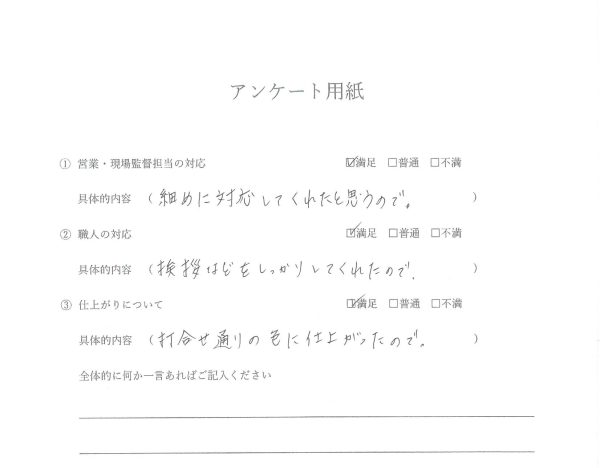 アンケート用紙
① 営業・現場監督担当の対応 ☑満足 □普通 □不満
具体的内容 （細めに対応してくれたと思うので。）
② 職人の対応 ☑満足 □普通 □不満
具体的内容 （挨拶などをしっかりしてくれたので.）
③ 仕上がりについて ☑満足 □普通 □不満
具体的内容 （打合せ通りの色に仕上がったので。）
全体的に何か一言あればご記入ください